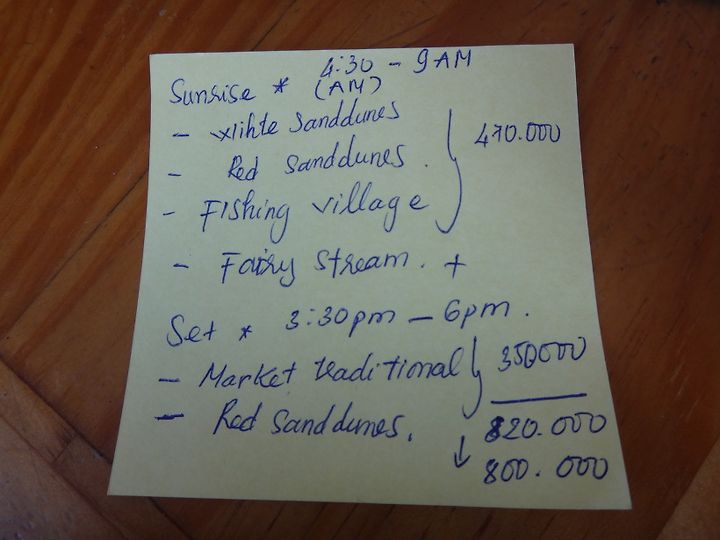 4:30 - 9AM
Sunrise * (AM)
- Wihte Sanddunes
- Red Sanddunes. 470.000
- Fishing village
- Fairy Stream. +
Set * 3:30pm - 6pm.
- Market traditional 350000
- Red Sanddunes. 820.000
↓ 800.000